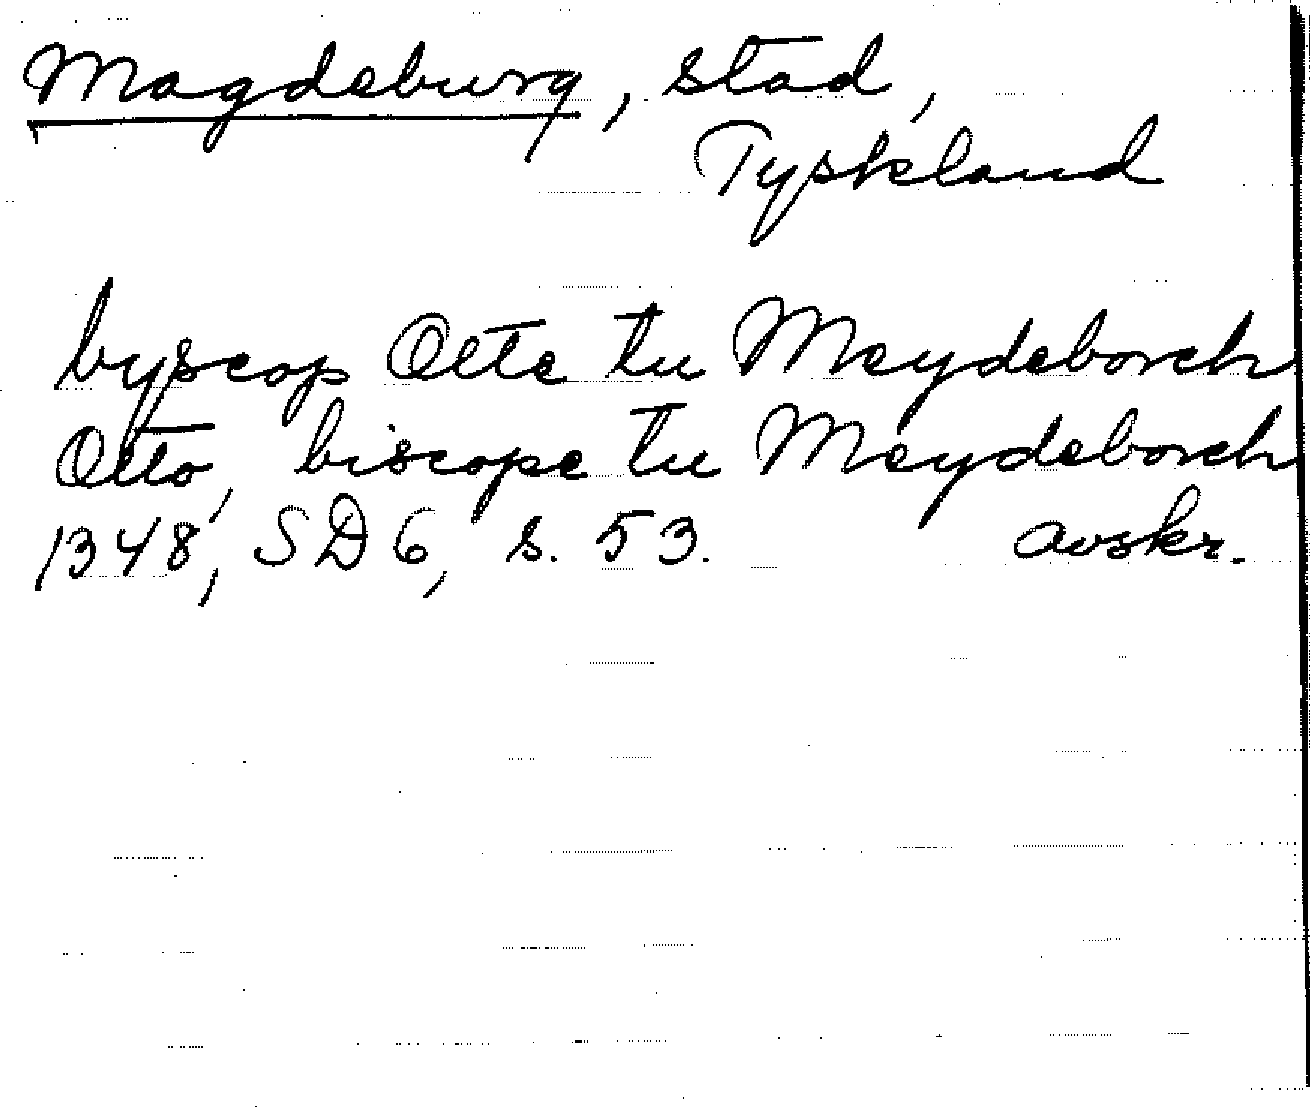 Magdeburg, stad,
Tyskland
byscop Otte tu Meydeborch
Otto, biscope tu Meydeborch
1348, SD 6, s. 53. avskr.